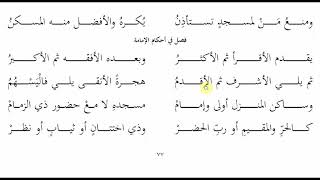 ومنعُ مَنْ لمسجدٍ تستأذِنُ يُكرهُ والأفضل منه المسكنُ
فصل في أحكام الإمامة
يقدم الأقرأ ثم الأكثرُ وبعده الأفقه ثم الأكبرُ
ثم يلي الأشرف ثم الأقدمُ هجرةً الأتقى يلي فالْيَسْهُمُ
وساكن المنزل أولى وإمامُ مسجدهِ لا مع حضور ذي الزمامْ
كالحرِّ والمقيم أو ربِّ الحضرْ وذي اختتانٍ أو ثيابٍ أو نظرْ
٧٧